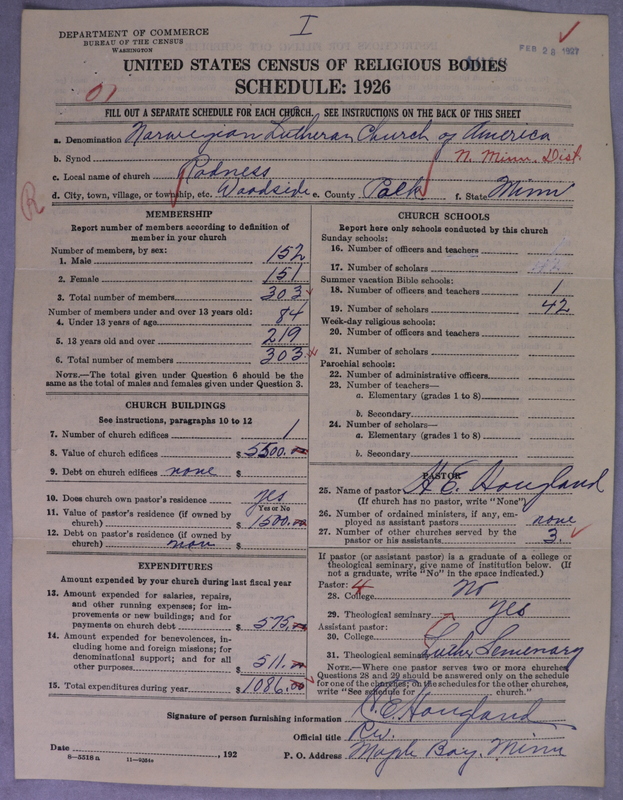 I
DEPARTMENT OF COMMERCE
BUREAU OF THE CENSUS
WASHINGTON
FEB 28 1927
UNITED STATES CENSUS OF RELIGIOUS BODIES
SCHEDULE: 1926
01
FILL OUT A SEPARATE SCHEDULE FOR EACH CHURCH. SEE INSTRUCTIONS ON THE BACK OF THIS SHEET
a. Denomination Norwegian Lutheran Church of America
b. Synod N. Minn. Dist.
c. Local name of church Rodness
d. City, town, village, or township, etc. Woodside e. County Polk f. State Minn
R
MEMBERSHIP
Report number of members according to definition of
member in your church
Number of members, by sex:
1. Male 152
2. Female 151
3. Total number of members 303
Number of members under and over 13 years old:
4. Under 13 years of age 84
5. 13 years old and over 219
6. Total number of members 303
NOTE.—The total given under Question 6 should be the
same as the total of males and females given under Question 3.
CHURCH BUILDINGS
See instructions, paragraphs 10 to 12
7. Number of church edifices 1
8. Value of church edifices $ 5500.00
9. Debt on church edifices none $
10. Does church own pastor's residence yes
Yes or No
11. Value of pastor's residence (if owned by
church) $ 1500.00
12. Debt on pastor's residence (if owned by
church) non $
EXPENDITURES
Amount expended by your church during last fiscal year
13. Amount expended for salaries, repairs,
and other running expenses; for im-
provements or new buildings; and for
payments on church debt $ 575.00
14. Amount expended for benevolences, in-
cluding home and foreign missions; for
denominational support; and for all
other purposes $ 511.00
15. Total expenditures during year $ 1086.00
CHURCH SCHOOLS
Report here only schools conducted by this church
Sunday schools:
16. Number of officers and teachers
17. Number of scholars
Summer vacation Bible schools:
18. Number of officers and teachers 1
19. Number of scholars 42
Week-day religious schools:
20. Number of officers and teachers
21. Number of scholars
Parochial schools:
22. Number of administrative officers
23. Number of teachers—
a. Elementary (grades 1 to 8)
b. Secondary
24. Number of scholars—
a. Elementary (grades 1 to 8)
b. Secondary
PASTOR
25. Name of pastor H. E. Hougland
(If church has no pastor, write "None")
26. Number of ordained ministers, if any, em-
ployed as assistant pastors none
27. Number of other churches served by the
pastor or his assistants 3.
If pastor (or assistant pastor) is a graduate of a college or
theological seminary, give name of institution below. (If
not a graduate, write "No" in the space indicated.)
Pastor: 4
28. College No
29. Theological seminary yes
Assistant pastor:
30. College
31. Theological seminary Luther Semenary
NOTE.—Where one pastor serves two or more churches,
Questions 28 and 29 should be answered only on the schedule
for one of the churches; on the schedules for the other churches,
write "See schedule for church."
Signature of person furnishing information H. E. Hougland
Official title Rev.
Date , 192 P. O. Address Maple Bay, Minn
8—5518 a 11—9264